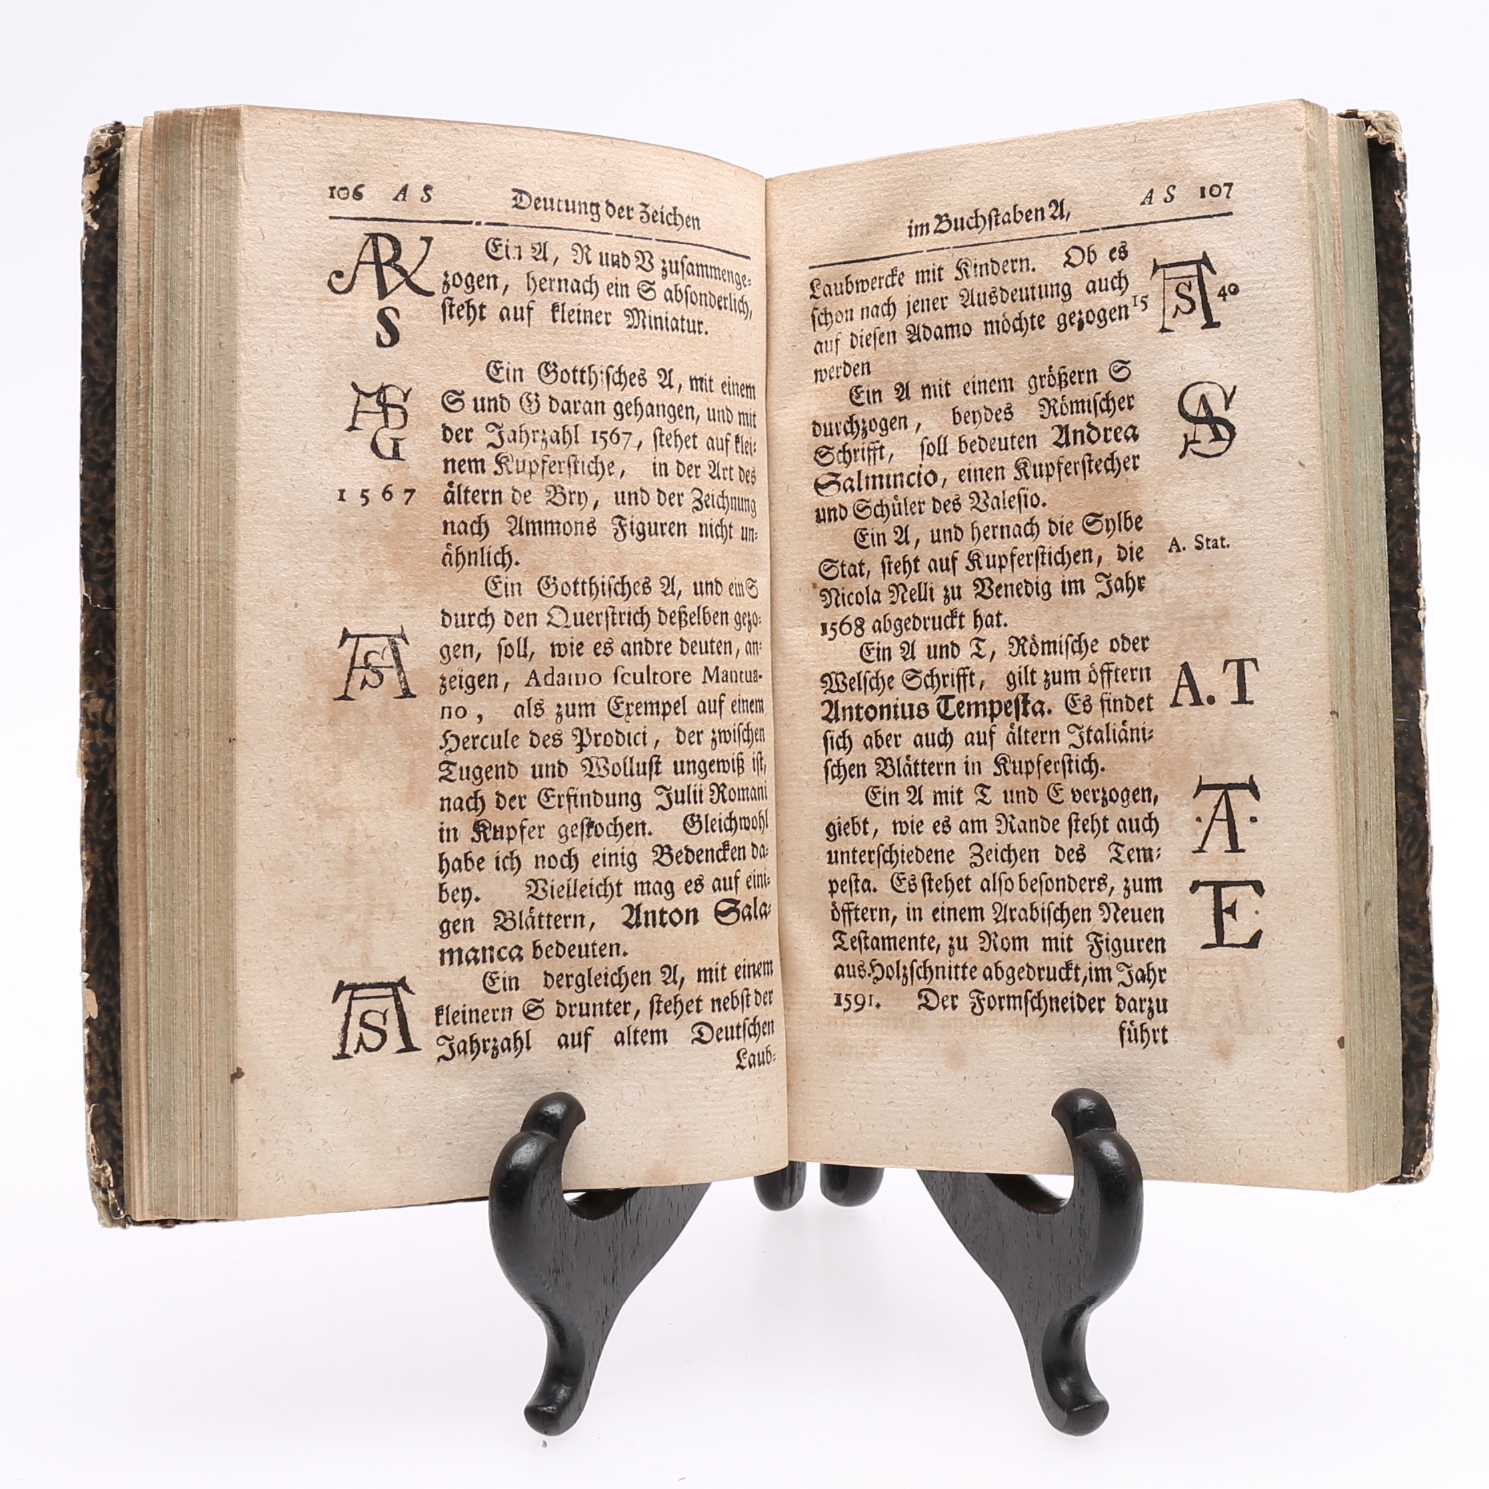 106 A S Deutung der Zeichen
ARV
S
Ein A, R und V zusammenge-
zogen, hernach ein S absonderlich,
steht auf kleiner Miniatur.
AS
G
1567
Ein Gotthisches A, mit einem
S und G daran gehangen, und mit
der Jahrzahl 1567, stehet auf klei-
nem Kupferstiche, in der Art des
ältern de Bry, und der Zeichnung
nach Ammons Figuren nicht un-
ähnlich.
AS
Ein Gotthisches A, und ein S
durch den Querstrich deßelben gezo-
gen, soll, wie es andre deuten, an-
zeigen, Adamo scultore Mantua-
no, als zum Exempel auf einem
Hercule des Prodici, der zwischen
Tugend und Wollust ungewiß ist,
nach der Erfindung Julii Romani
in Kupfer gestochen. Gleichwohl
habe ich noch einig Bedencken da-
bey. Vielleicht mag es auf eini-
gen Blättern, Anton Sala-
manca bedeuten.
AS
Ein dergleichen A, mit einem
kleinern S drunter, stehet nebst der
Jahrzahl auf altem Deutschen
Laub-
im Buchstaben A, A S 107
Laubwercke mit Kindern. Ob es
schon nach jener Ausdeutung auch
auf diesen Adamo möchte gezogen
werden
15 AS 40
Ein A mit einem größern S
durchzogen, beydes Römischer
Schrifft, soll bedeuten Andrea
Salmincio, einen Kupferstecher
und Schüler des Valesio.
AS
Ein A, und hernach die Sylbe
Stat, steht auf Kupferstichen, die
Nicola Nelli zu Venedig im Jahr
1568 abgedruckt hat.
A. Stat.
Ein A und T, Römische oder
Welsche Schrifft, gilt zum öfftern
Antonius Tempesta. Es findet
sich aber auch auf ältern Italiäni-
schen Blättern in Kupferstich.
A. T
Ein A mit T und E verzogen,
giebt, wie es am Rande steht auch
unterschiedene Zeichen des Tem-
pesta. Es stehet also besonders, zum
öfftern, in einem Arabischen Neuen
Testamente, zu Rom mit Figuren
aus Holzschnitte abgedruckt, im Jahr
1591. Der Formschneider darzu
führt
·A·
TE